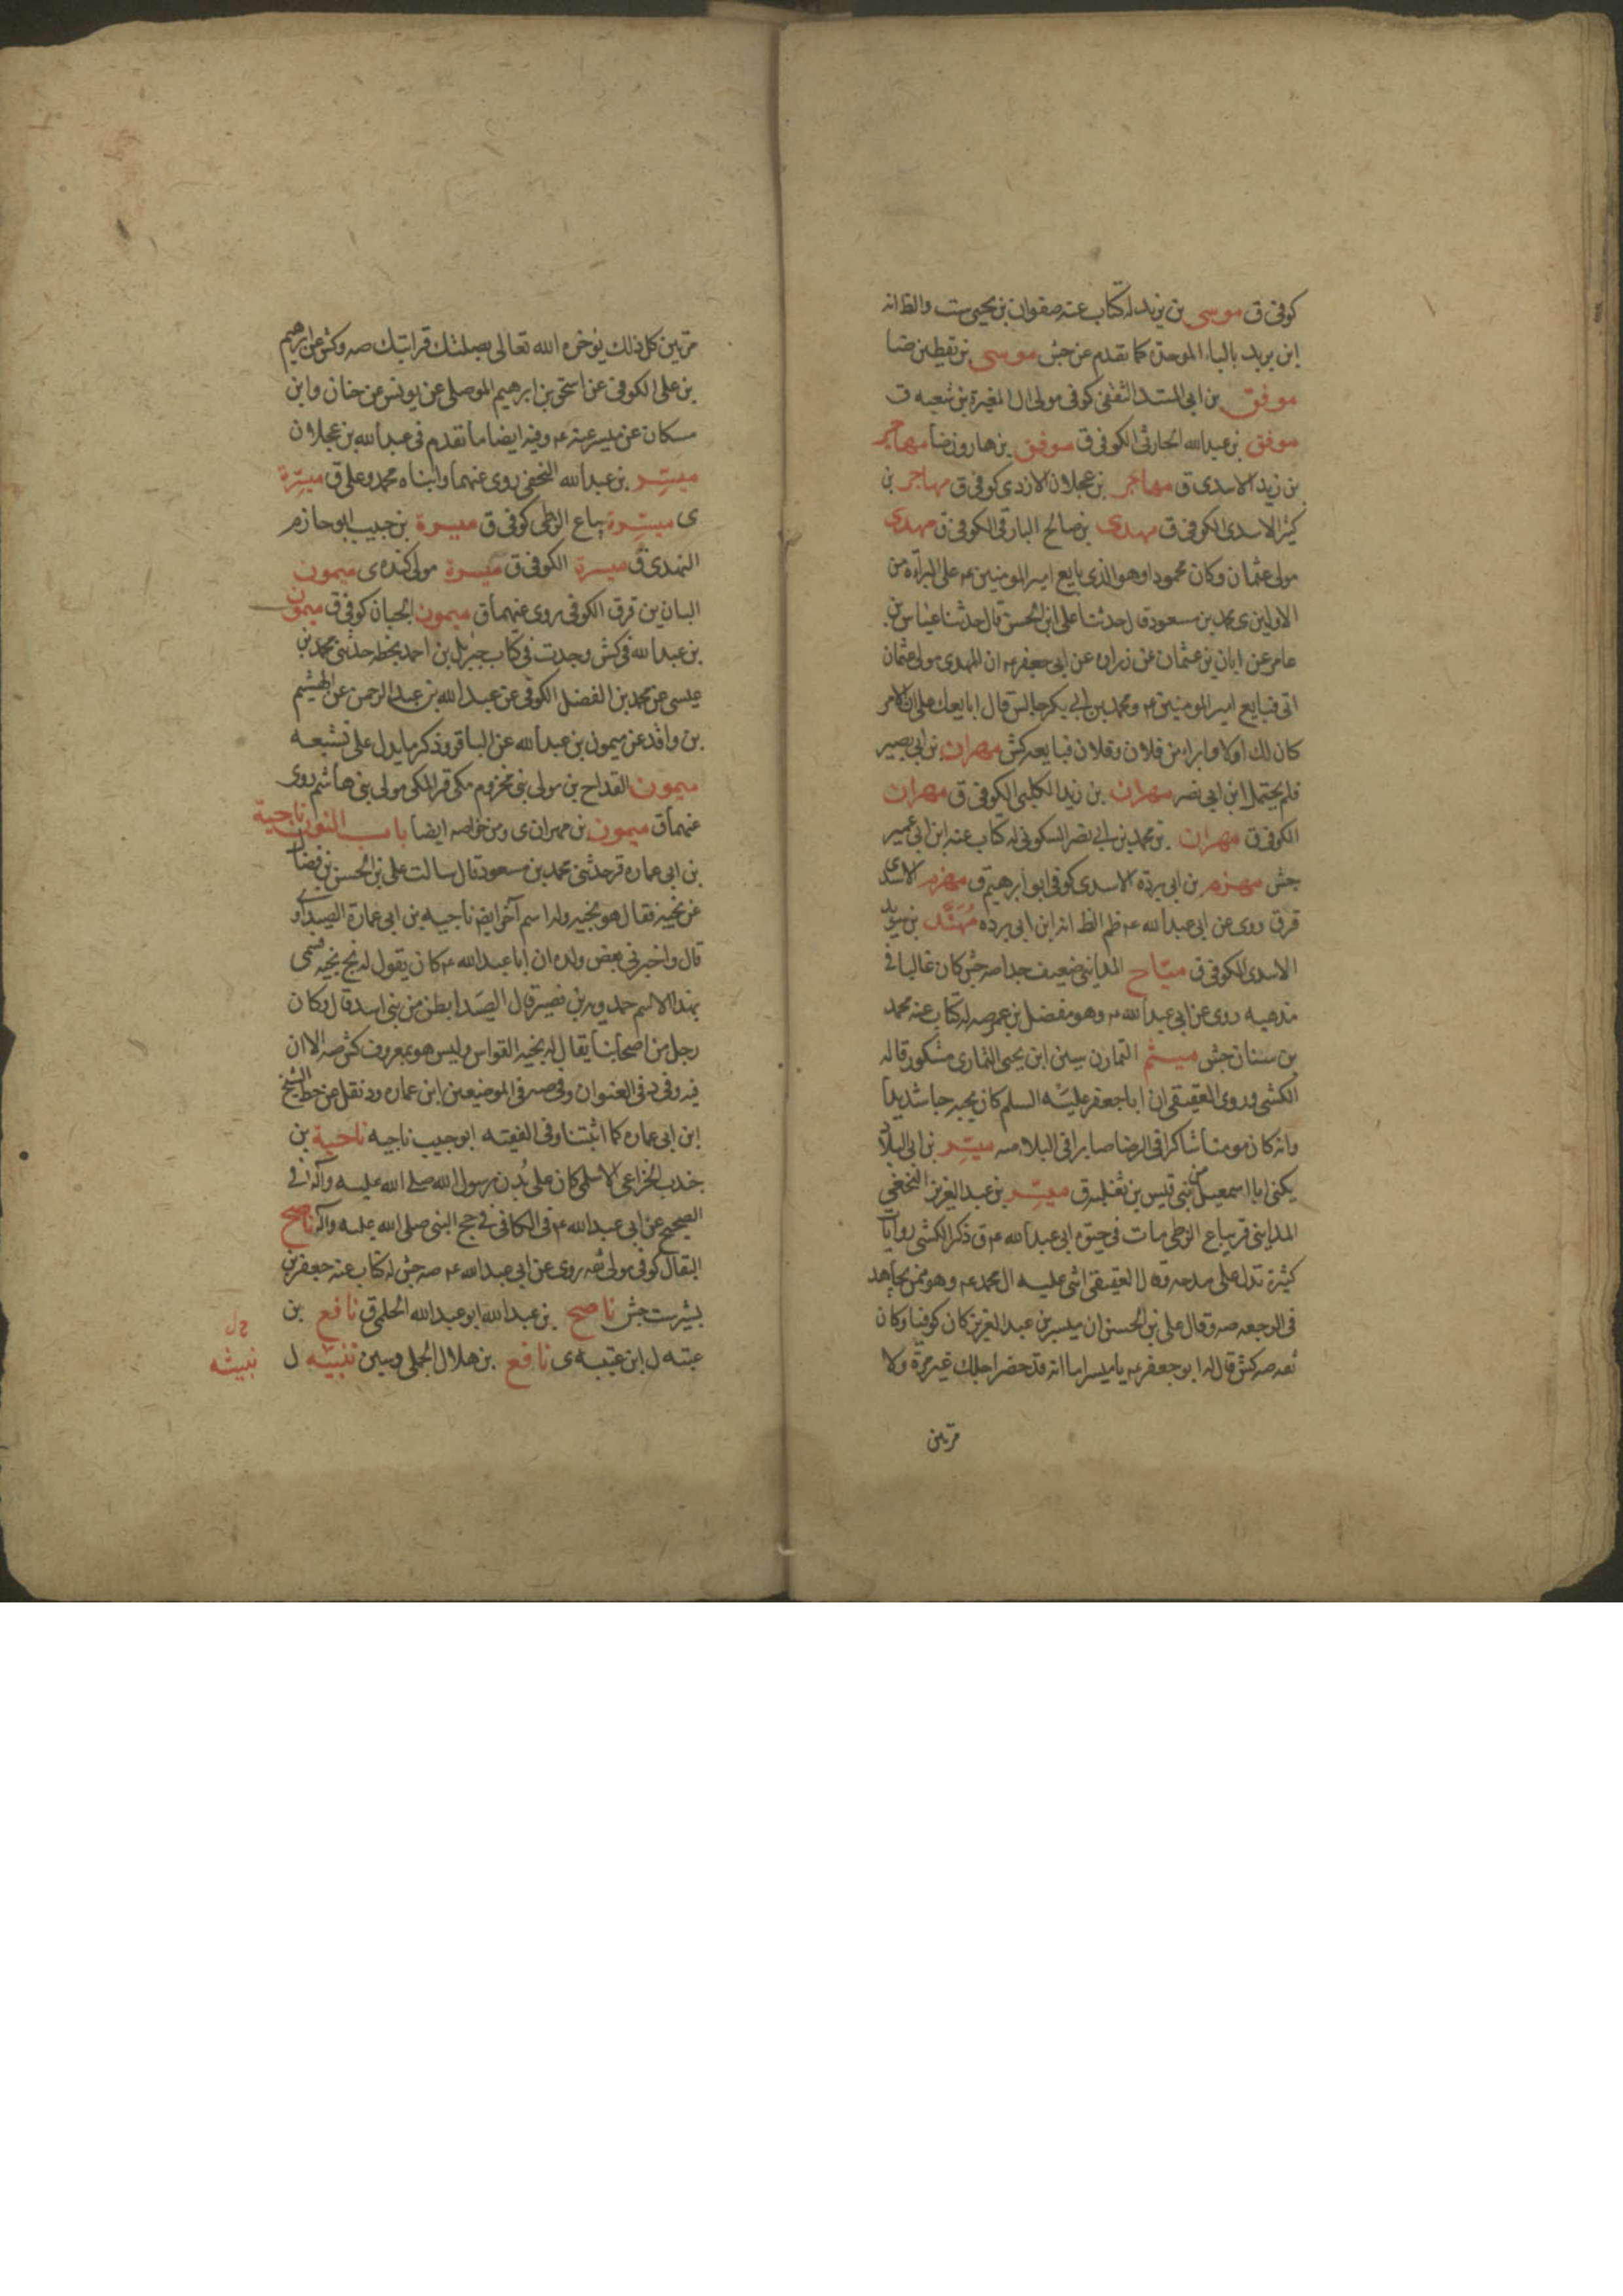 كوفى ق موسى بن يزيد له كتاب عنه صفوان بن يحيى ست والظ انه
ابن بريد بالباء الموحدة كما تقدم عن جش موسى بن يقطين ضا
موفق بن ابى الثقفى كوفى مولى ال المغيرة بن شعبه ق
موفق بن عبدالله الحارثى الكوفى ق موفق بن هارون ضا مهاجر
بن زيد الاسدى ق مهاجر بن عجلان الازدى كوفى ق مهاجر بن
كثير الاسدى الكوفى ق مهدى بن صالح البارقى الكوفى ق مهدى
مولى عثمان وكان محمودا وهو الذى بايع امير المومنين ع على البراءة من
الاولين ى محمد بن مسعود قال حدثنا على ابن الحسن قال حدثنا عباس بن
عامر عن ابان بن عثمان عن زراره عن ابى جعفر ع ان المهدى مولى عثمان
اتى فبايع امير المومنين ع ومحمد بن ابى بكر جالس قال ابايعك على ان الامر
كان لك اولا وابرا من فلان وفلان فبايعه كش مهران بن ابى بصير
فلم يحتمل ابن ابى نصر مهران بن زيد الكلبى الكوفى ق مهران
الكوفى ق مهران بن محمد بن ابى نصر السكونى له كتاب عنه ابن ابى عمير
جش مهزم بن ابى برده الاسدى كوفى ابو ابرهيم ق مهزم الاسدى
قر ق روى عن ابى عبدالله ع ظم الظ انه ابن ابى برده مهند بن سويد
الاسدى الكوفى ق مياح المداينى ضعيف جدا صه جش كان غاليا فى
مذهبه روى عن ابى عبدالله ع وهو مفضل بن عمر صه له كتاب عنه محمد
بن سنان جش ميثم التمار ن سين ابن يحيى التمار ى مشكور قاله
الكشى وروى العقيقى ان ابا جعفر عليه السلم كان يحبه حبا شديدا
وانه كان مومنا شاكرا فى الرخا صابرا فى البلاء صه ميسر بن ابى البلاد
يكنى ابا اسمعيل من بنى قيس بن ثعلبه ق ميسر بن عبد العزيز النخعى
المداينى قر بياع الزطى مات فى حيوة ابى عبدالله ع ق ذكر الكشى روايات
كثيرة تدل على مدحه وقال العقيقى اثنى عليه ال محمد ع وهو ممن يجاهد
فى الرجعه صه وقال على بن الحسن ان ميسر بن عبد العزيز كان كوفيا وكان
ثقه صه كش قال له ابو جعفر ع يا ميسر اما انه قد حضر اجلك غير مرة ولا
مرتين
مرتين كل ذلك يوخره الله تعالى بصلتك قرابتك صه وكش عن ابرهيم
بن على الكوفى عن اسحق بن ابرهيم الموصلى عن يونس عن حنان وابن
مسكان عن ميسر عنه ع وفيه ايضا ما تقدم فى عبدالله بن عجلان
ميسر بن عبدالله النخعى روى عنهما وابناه محمد وعلى ق ميسرة
ى ميسرة بياع الزطى كوفى ق ميسرة بن حبيب ابو حازم
النهدى ق ميسرة الكوفى ق ميسرة مولى كنده ى ميمون
البان ين قر ق الكوفى روى عنهما ق ميمون الجبان كوفى ق ميمون
بن عبدالله فى كش وجدت فى كتاب جبريل بن احمد بخطه حدثنى محمد بن
عيسى عن محمد بن الفضل الكوفى عن عبدالله بن عبدالرحمن عن الهيثم
بن واقد عن ميمون بن عبدالله عن الباقر وذكر ما يدل على تشيعه
ميمون القداح ين مولى بنى مخزوم مكى قر المكى مولى بنى هاشم روى
عنهما ق ميمون بن مهران ى ومن خواصه ايضا باب النون ناجية
بن ابى عماره قر حدثنى محمد بن مسعود قال سالت على بن الحسن بن فضال
عن نجيه فقال هو نجيه وله اسم آخر ايضا ناجيه بن ابى عمارة الصيداوى
قال واخبرنى بعض ولده ان ابا عبدالله ع كان يقول له نج نجيه فسمى
بهذا الاسم حمدويه بن نصير قال الصيدا بطن من بنى اسد قال وكان
رجل من اصحابنا يقال له نجيه القواس وليس هو بمعروف كش صه الا ان
فيه وفى د فى العنوان وفى صه فى الموضعين ابن عماره ود نقل من خط الشيخ
ابن ابى عماره كما اثبتنا وفى الفقيه ابو حبيب ناجيه ناجية بن
جندب الخزاعى الاسلمى كان على بدن رسول الله صلى الله عليه وآله ل فى
الصحيح عن ابى عبدالله ع فى الكافى فى حج النبى صلى الله عليه وآله ناصح
البقال كوفى مولى ثقه روى عن ابى عبدالله ع صه جش له كتاب عنه جعفر بن
بشير ست جش ناصح بن عبدالله ابو عبدالله الحلمى ق نافع بن
عتبه ل ابن عتيبه ى نافع بن هلال الجملى ى سين نبيشه ل
نبيشه